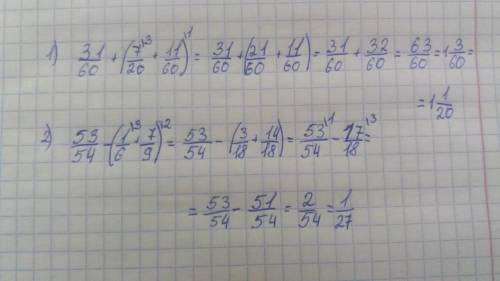 1) 31/60 + (7/20\3 + 11/60)\1 = 31/60 + (21/60 + 11/60) = 31/60 + 32/60 = 63/60 = 1 3/60 =
= 1 1/20
2) 53/54 - (1/6\3 + 7/9)\2 = 53/54 - (3/18 + 14/18) = 53/54\1 - 17/18\3 =
= 53/54 - 51/54 = 2/54 = 1/27